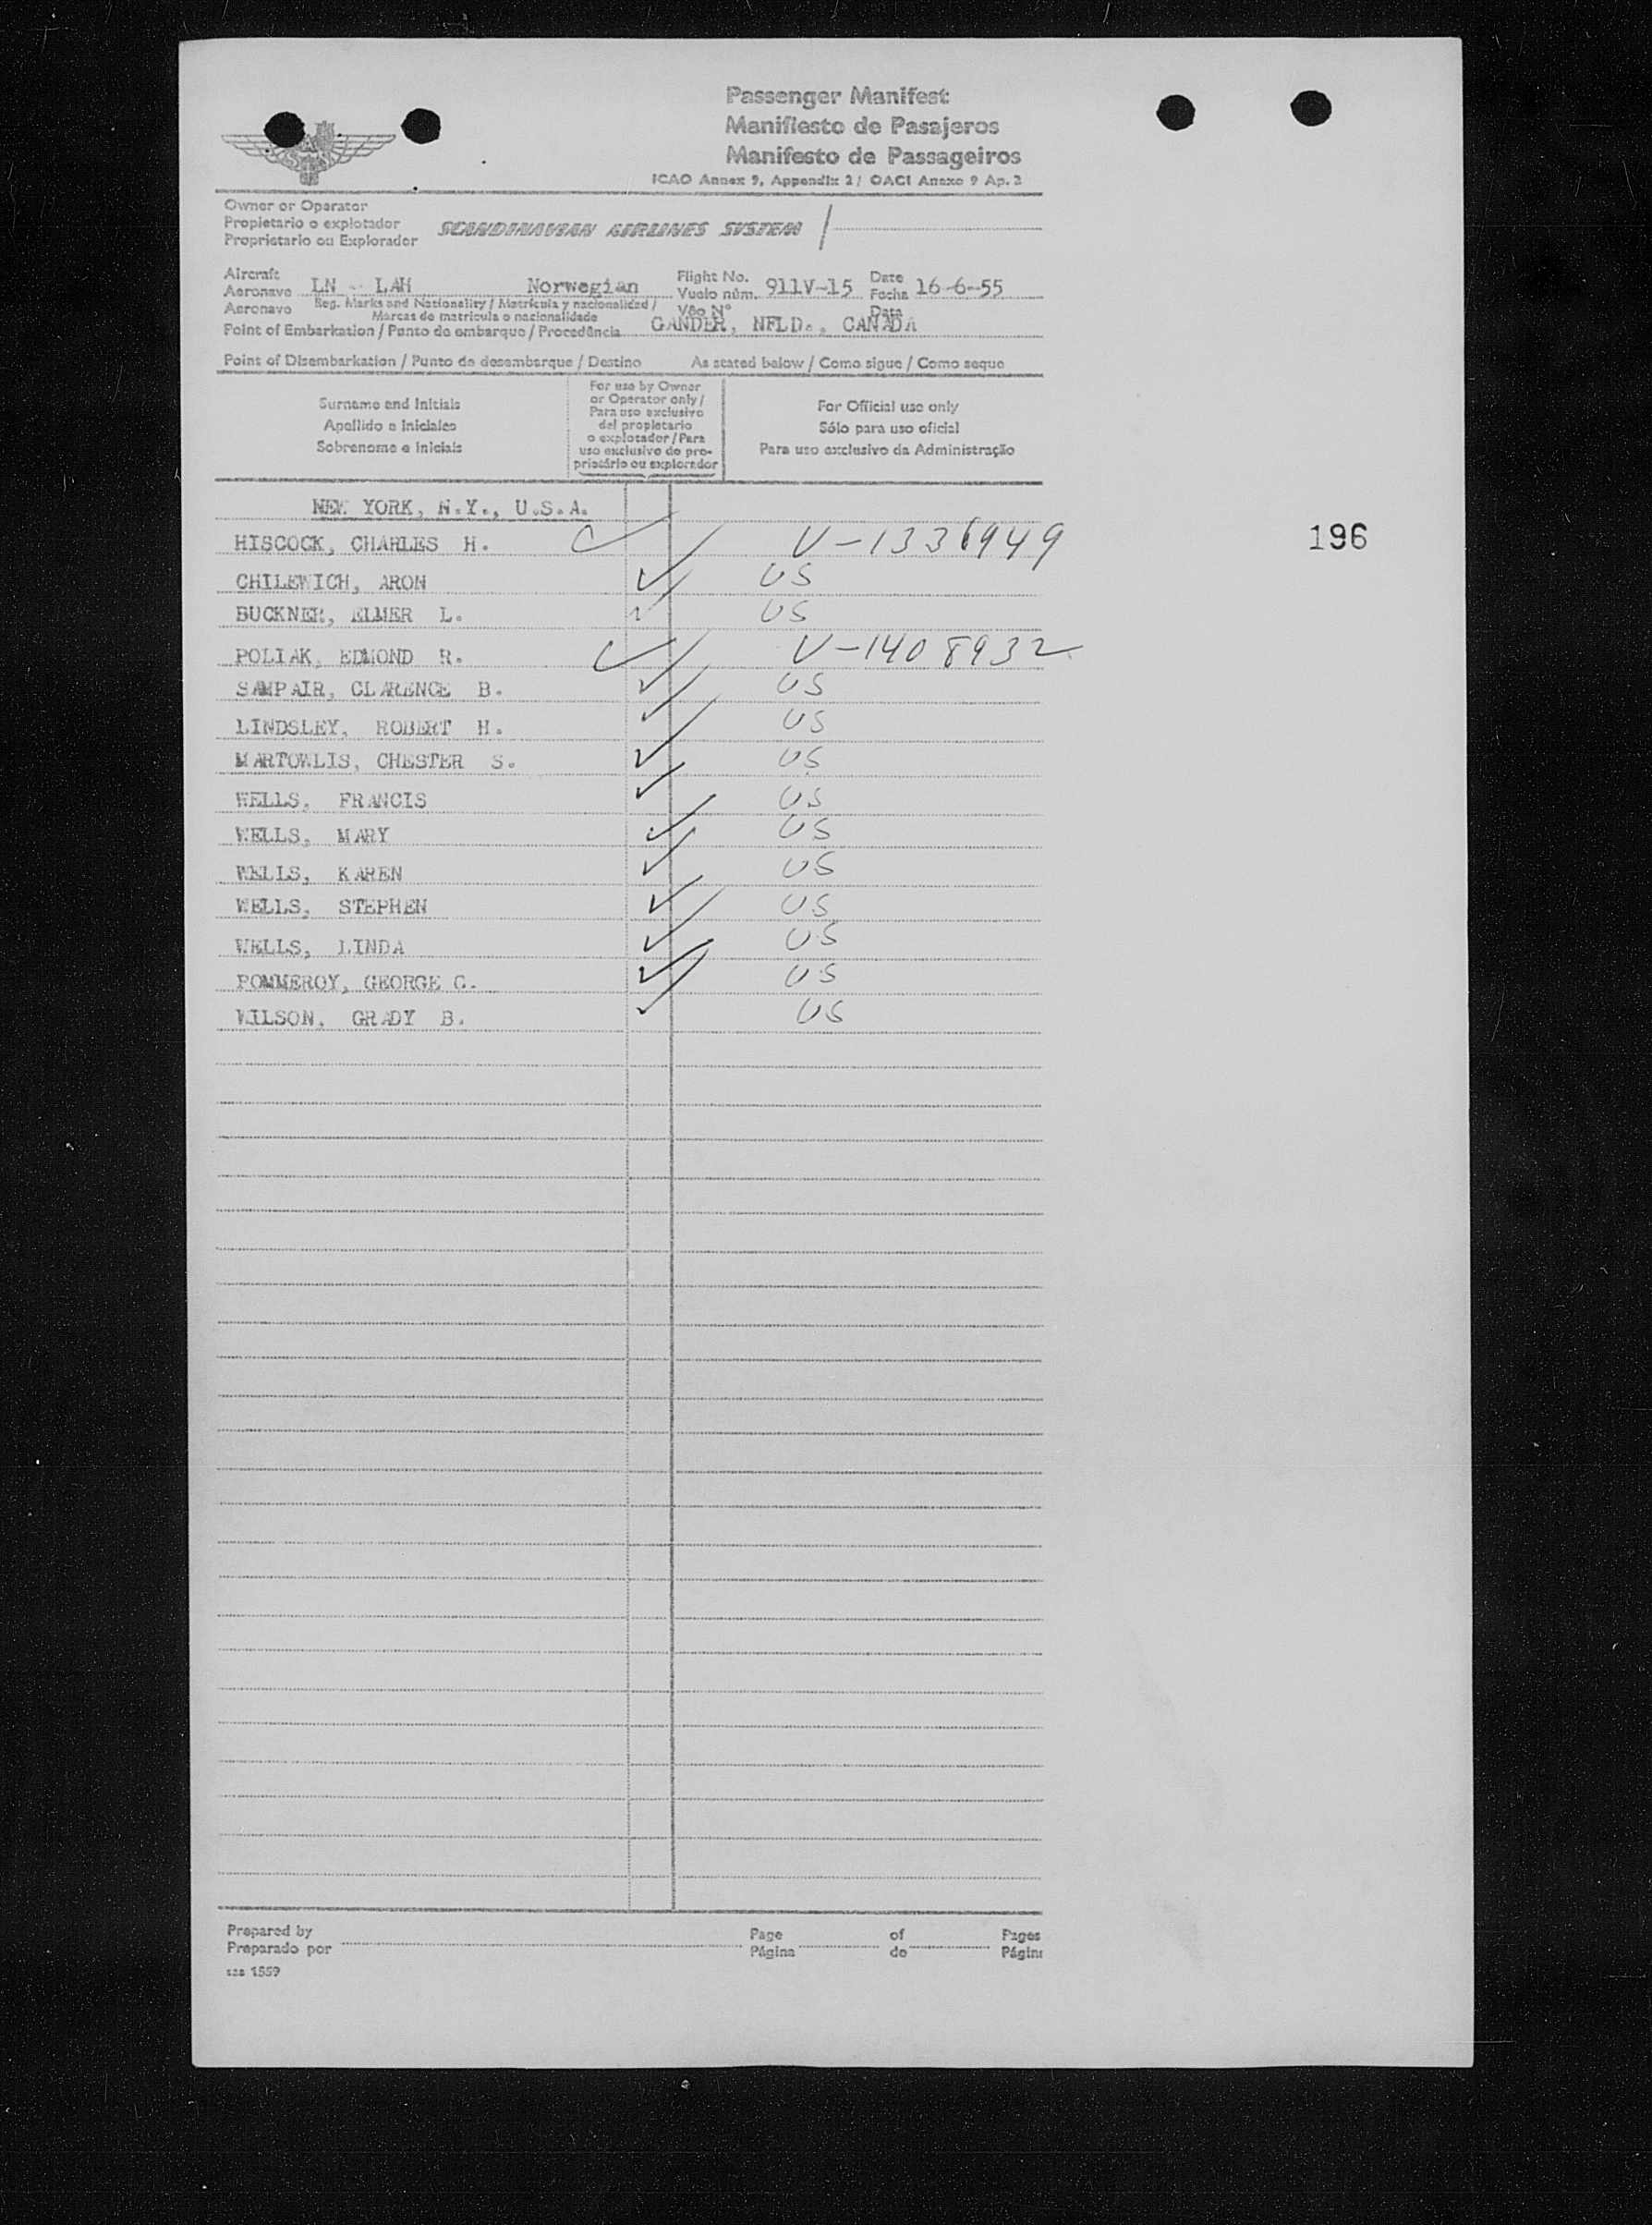 Passenger Manifest
Manifiesto de Pasajeros
Manifesto de Passageiros
ICAO Annex 9, Appendix 2 / OACI Anexo 9 Ap. 2
Owner or Operator
Propietario o explotador
Proprietario ou Explorador
SCANDINAVIAN AIRLINES SYSTEM
Aircraft
Aeronave
Aeronavo
LN - LAH Norwegian
Flight No.
Vuelo núm.
Vôo Nº
911V-15
Date
Fecha
Data
16-6-55
Reg. Marks and Nationality / Matrícula y nacionalidad /
Marcas de matricula o nacionalidade
Point of Embarkation / Punto de embarque / Procedência GANDER, NFLD., CANADA
Point of Disembarkation / Punto de desembarque / Destino As stated below / Como sigue / Como seque
Surname and Initials
Apellido e Iniciales
Sobrenome e Iniciais
For use by Owner
or Operator only /
Para uso exclusivo
del propietario
o explotador / Para
uso exclusivo do pro-
priotário ou explorador
For Official use only
Sólo para uso oficial
Para uso exclusivo da Administração
NEW YORK, N.Y., U.S.A.
HISCOCK, CHARLES H. V-1336949 196
CHILEWICH, ARON US
BUCKNER, ELMER L. US
POLIAK, EDMOND R. V-1408932
SAMPAIR, CLARENCE B. US
LINDSLEY, ROBERT H. US
MARTOWLIS, CHESTER S. US
WELLS, FRANCIS US
WELLS, MARY US
WELLS, KAREN US
WELLS, STEPHEN US
WELLS, LINDA US
POMMEROY, GEORGE C. US
WILSON, GRADY B. US
Prepared by
Preparado por
Page
Página
of
de
Pages
Págin
sas 1559